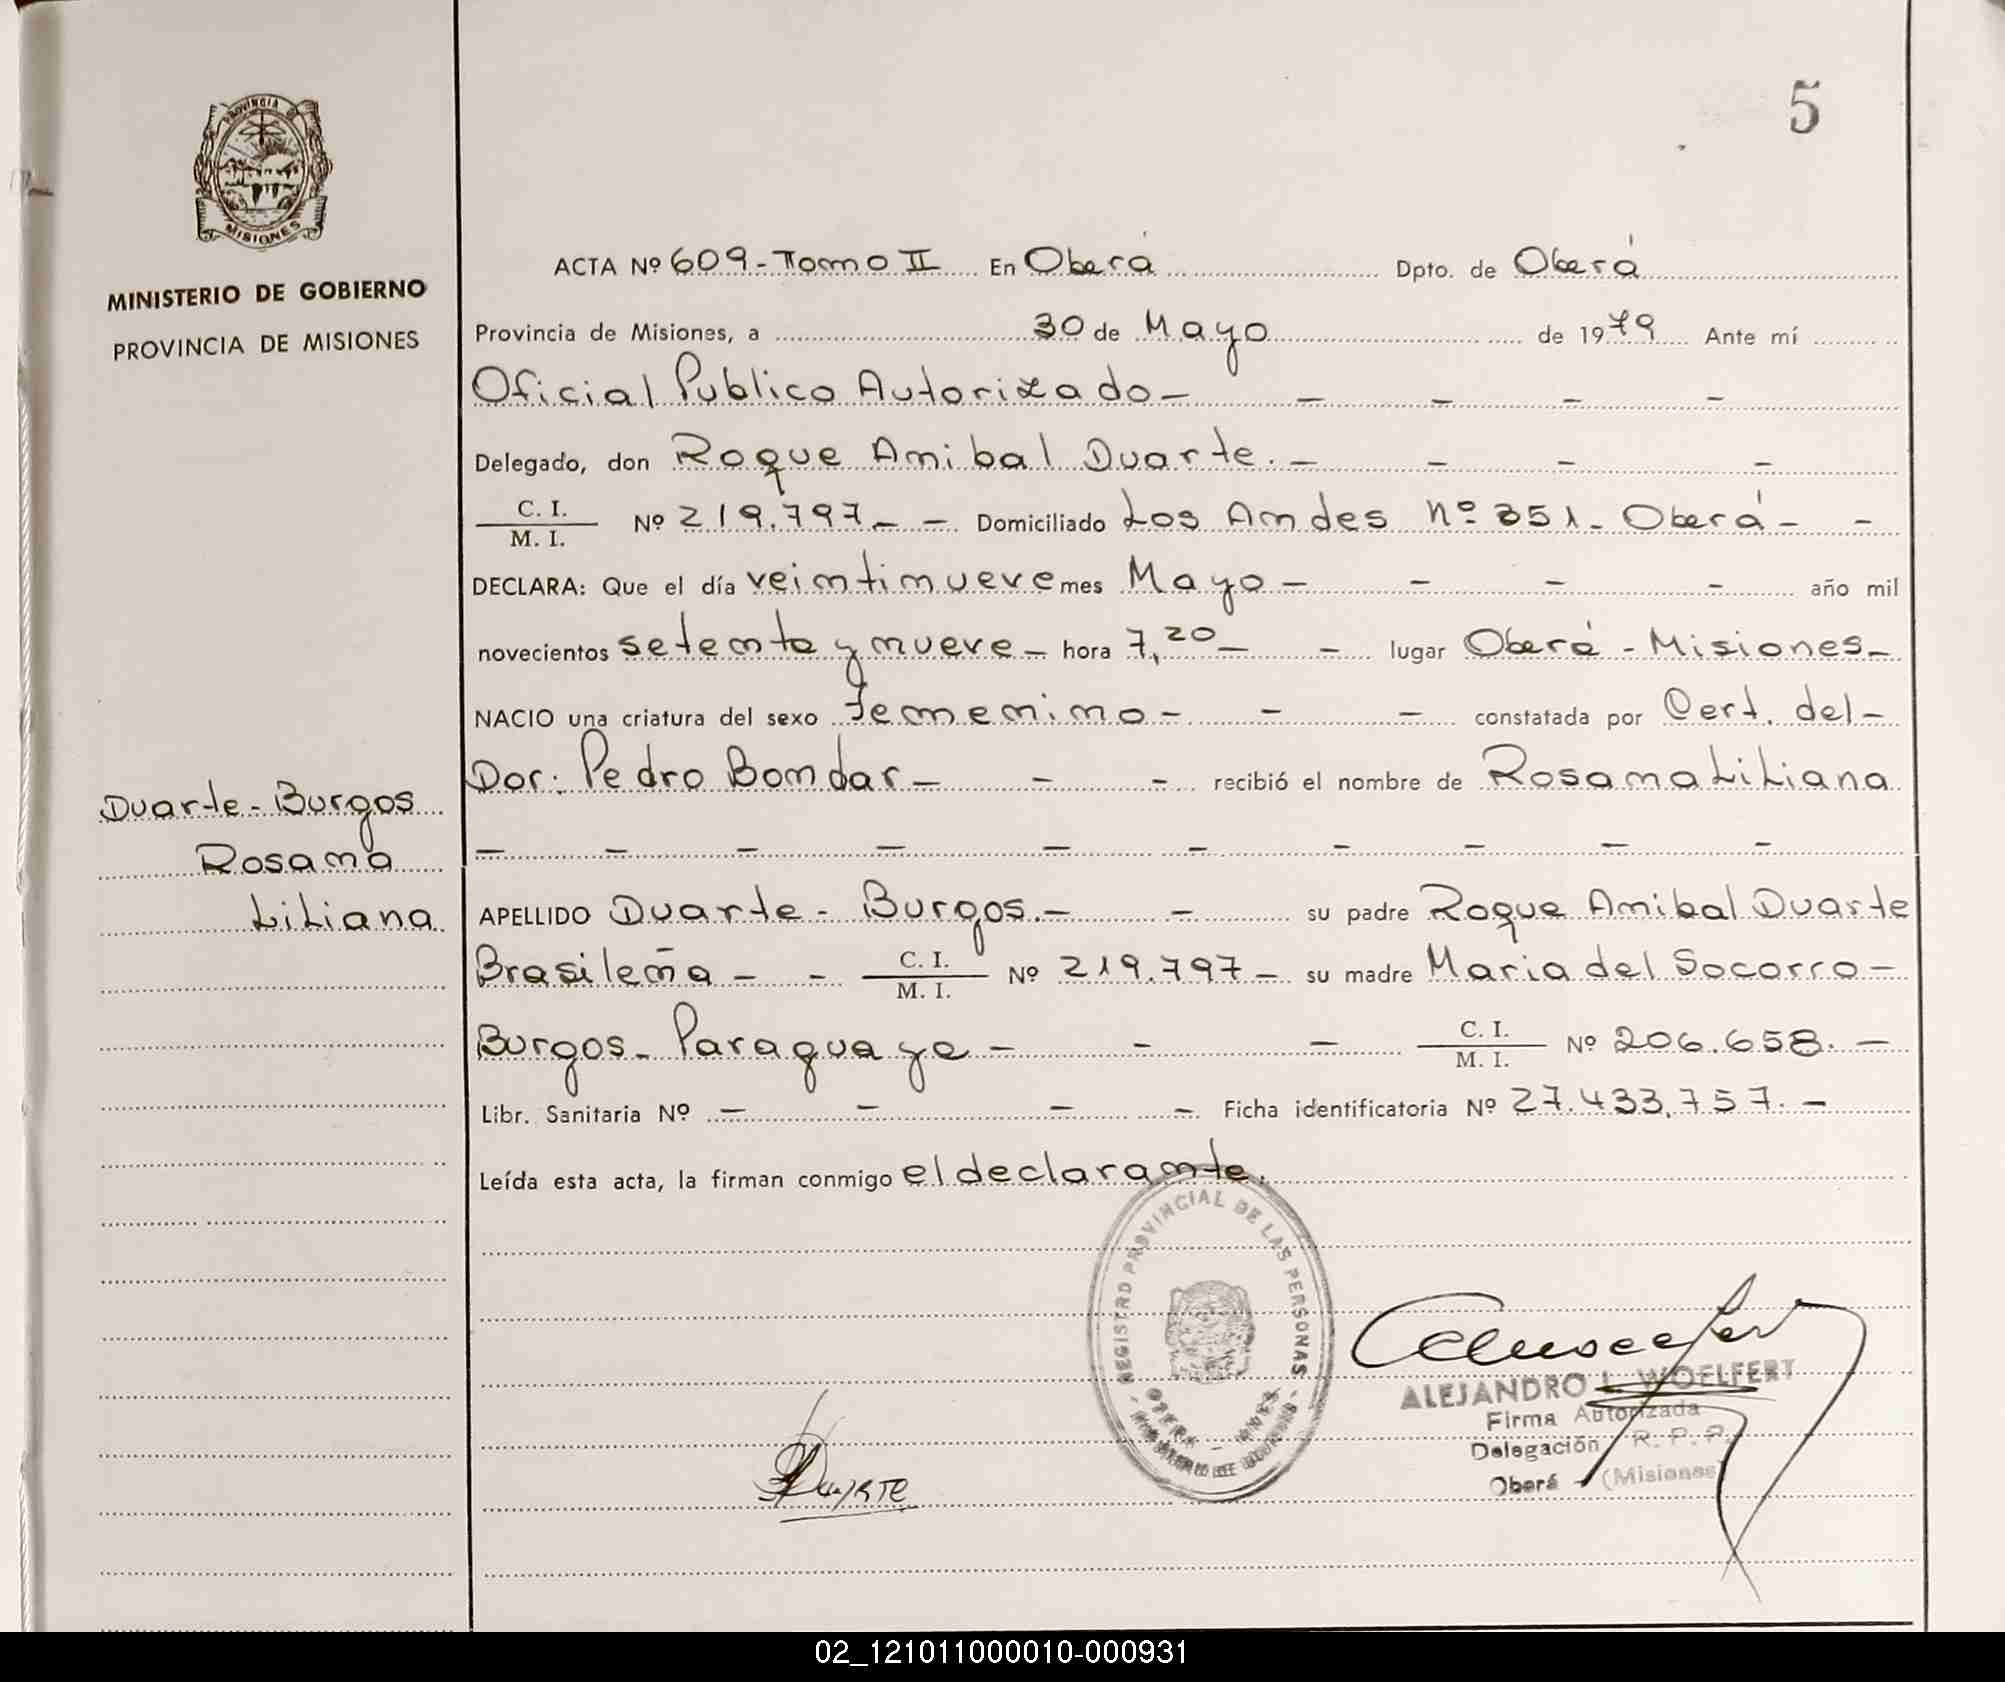 5
PROVINCIA DE
MISIONES
MINISTERIO DE GOBIERNO
PROVINCIA DE MISIONES
ACTA Nº 609 - Tomo II En Oberá Dpto. de Oberá
Provincia de Misiones, a 30 de Mayo de 1979 Ante mí
Oficial Publico Autorizado - - - - -
Delegado, don Roque Anibal Duarte. - - - -
C. I.
M. I.
Nº 219.797 - - Domiciliado Los Andes Nº 351 - Oberá - -
DECLARA: Que el día veintinueve mes Mayo - - - - año mil
novecientos setenta y nueve - hora 7,20 - - lugar Oberá - Misiones -
NACIO una criatura del sexo femenino - - - constatada por Cert. del -
Dor: Pedro Bondar - - - recibió el nombre de Rosana Liliana
- - - - - - - - - -
Duarte - Burgos
Rosana
Liliana
APELLIDO Duarte - Burgos - - su padre Roque Anibal Duarte
Brasileña - - C. I. M. I. Nº 219.797 - su madre Maria del Socorro -
Burgos - Paraguaya - - - C. I. M. I. Nº 206.658. -
Libr. Sanitaria Nº - - - - Ficha identificatoria Nº 27.433.757. -
Leída esta acta, la firman conmigo el declarante.
REGISTRO PROVINCIAL DE LAS PERSONAS
Duarte
ALEJANDRO L. WOELFERT
Firma Autorizada
Delegación R. P. P.
Oberá - (Misiones)
02_121011000010-000931